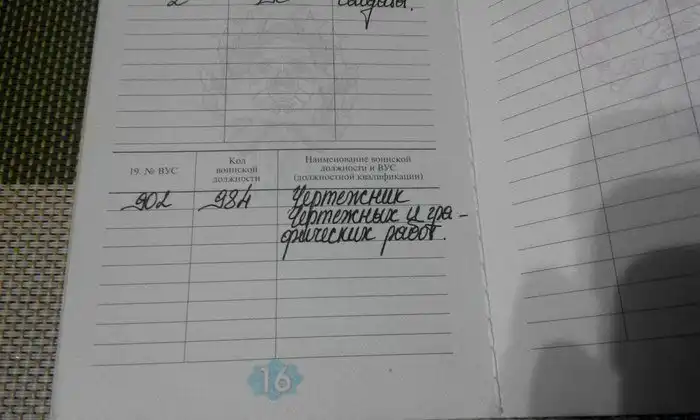 19. № ВУС
Код воинской должности
Наименование воинской должности и ВУС (должностной квалификации)
902 984 Чертежник
Чертежных и гра-
фических работ.
16